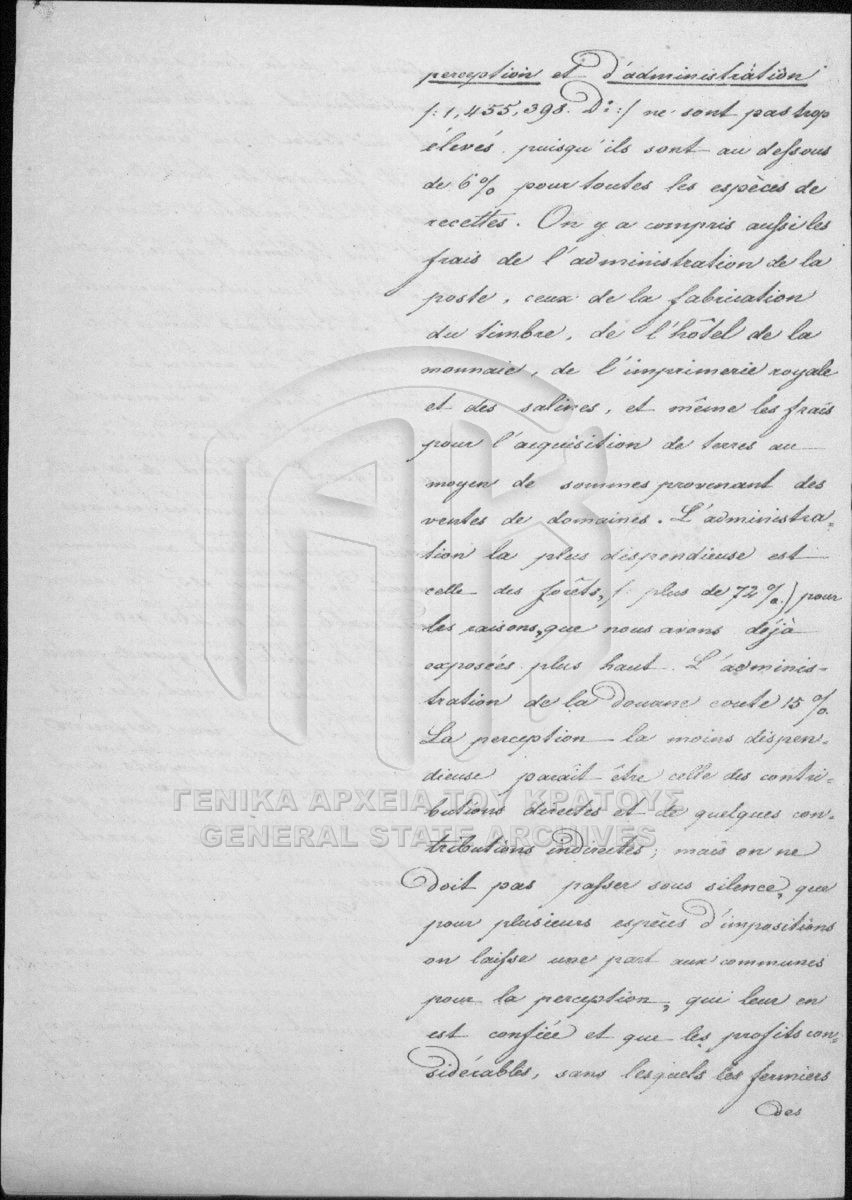 perception et d'administration
/: 1,455,398. Dr :/ ne sont pas trop
élevés, puisqu'ils sont au dessous
de 6% pour toutes les espèces de
recettes. On y a compris aussi les
frais de l'administration de la
poste, ceux de la fabrication
du timbre, de l'hôtel de la
monnaie, de l'imprimerie royale
et des salines, et même les frais
pour l'acquisition de terres au
moyen de sommes provenant des
ventes de domaines. L'administra-
tion la plus dispendieuse est
celle des forêts, (: plus de 72%.) pour
les raisons, que nous avons déjà
exposées plus haut. L'adminis-
tration de la douane coute 15%.
La perception la moins dispen-
dieuse parait être celle des contri-
butions directes et de quelques con-
tributions indirectes; mais on ne
doit pas passer sous silence, que
pour plusieurs espèces d'impositions
on laisse une part aux communes
pour la perception, qui leur en
est confiée et que les profits con-
sidérables, sans lesquels les fermiers
des
ΓΕΝΙΚΑ ΑΡΧΕΙΑ ΤΟΥ ΚΡΑΤΟΥΣ
GENERAL STATE ARCHIVES